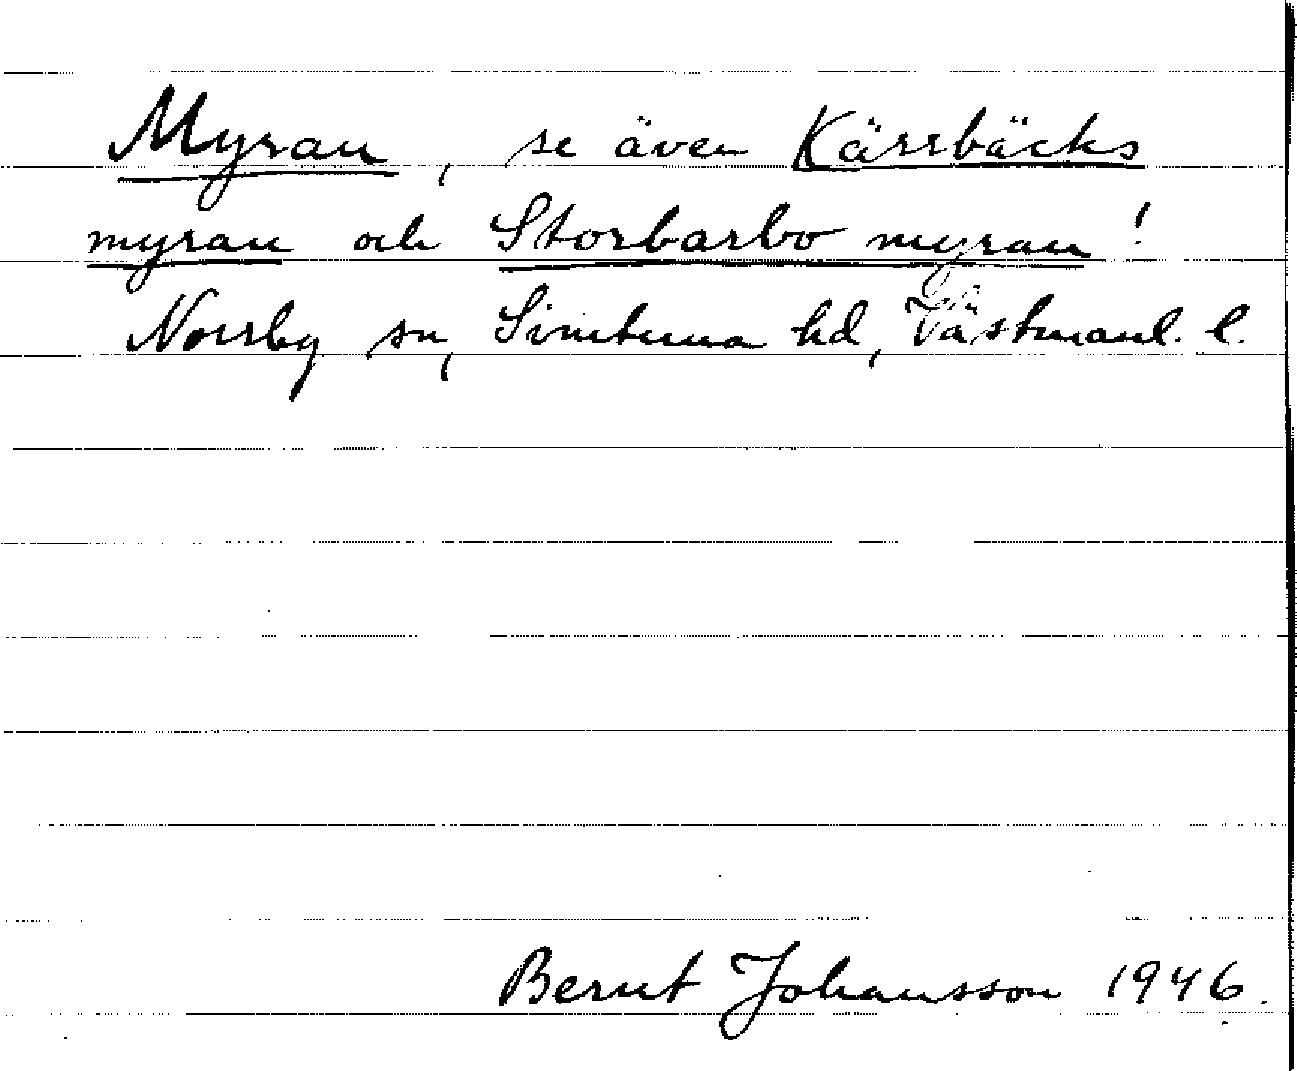 Myran, se även Kärrbäcks
myran och Storbarbo myran!
Norrby sn, Simtuna hd, Västmanl. l.
Bernt Johansson 1946.